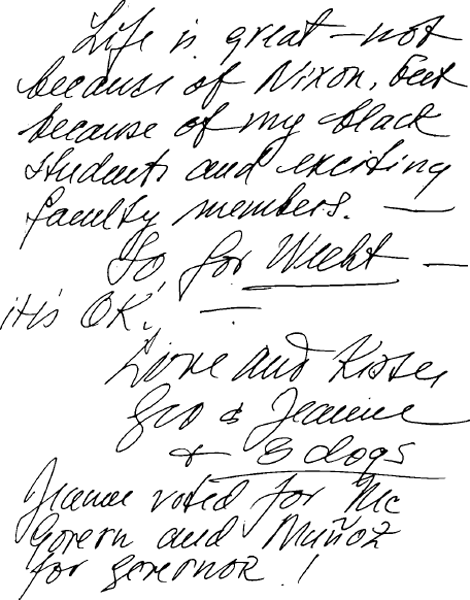 Life is great – not
because of Nixon, but
because of my black
students and exciting
faculty members. —
Go for Wecht —
it's OK, —
Love and Kisses
Geo & Jeanne
+ 3 dogs
Jeanne voted for Mc
Govern and Muñoz
for governor!